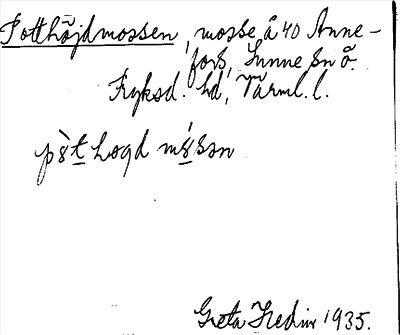 Potthöjdmossen, mosse å 40 Anne-
fors, Sunne sn Ö.
Fryksd. hd, Värml. l.
Greta Hedin 1935.